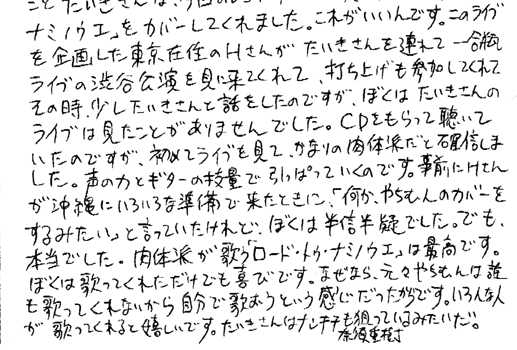 ナミノウエ」をカバーしてくれました。これがいいんです。このライブ
を企画した東京在住のHさんが たいきさんを連れて 一合瓶
ライブの渋谷公演を見に来てくれて、打ち上げも参加してくれて
その時、少したいきさんと話をしたのですが、ぼくはたいきさんの
ライブは見たことがありませんでした。CDをもらって聴いて
いたのですが、初めてライブを見て、かなりの肉体派だと確信しま
した。声の力とギターの技量で引っぱっていくのです。事前にHさん
が沖縄にいろいろな準備で来たときに、「何か、やちむんのカバーを
するみたい」と言っていたけれど、ぼくは半信半疑でした。でも、
本当でした。肉体派が歌う「ロード・トゥ・ナミノウエ」は最高です。
ぼくは歌ってくれただけでも喜びです。なぜなら、元々やちむんは誰
も歌ってくれないから自分で歌おうという感じだったからです。いろんな人
が歌ってくれると嬉しいです。たいきさんはナンチチも狙っているみたいだ!
奈須重樹